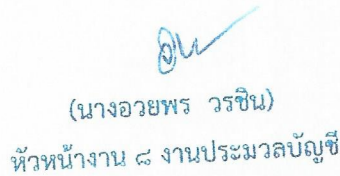 (นางอวยพร วรชิน)
หัวหน้างาน ๘ งานประมวลบัญชี